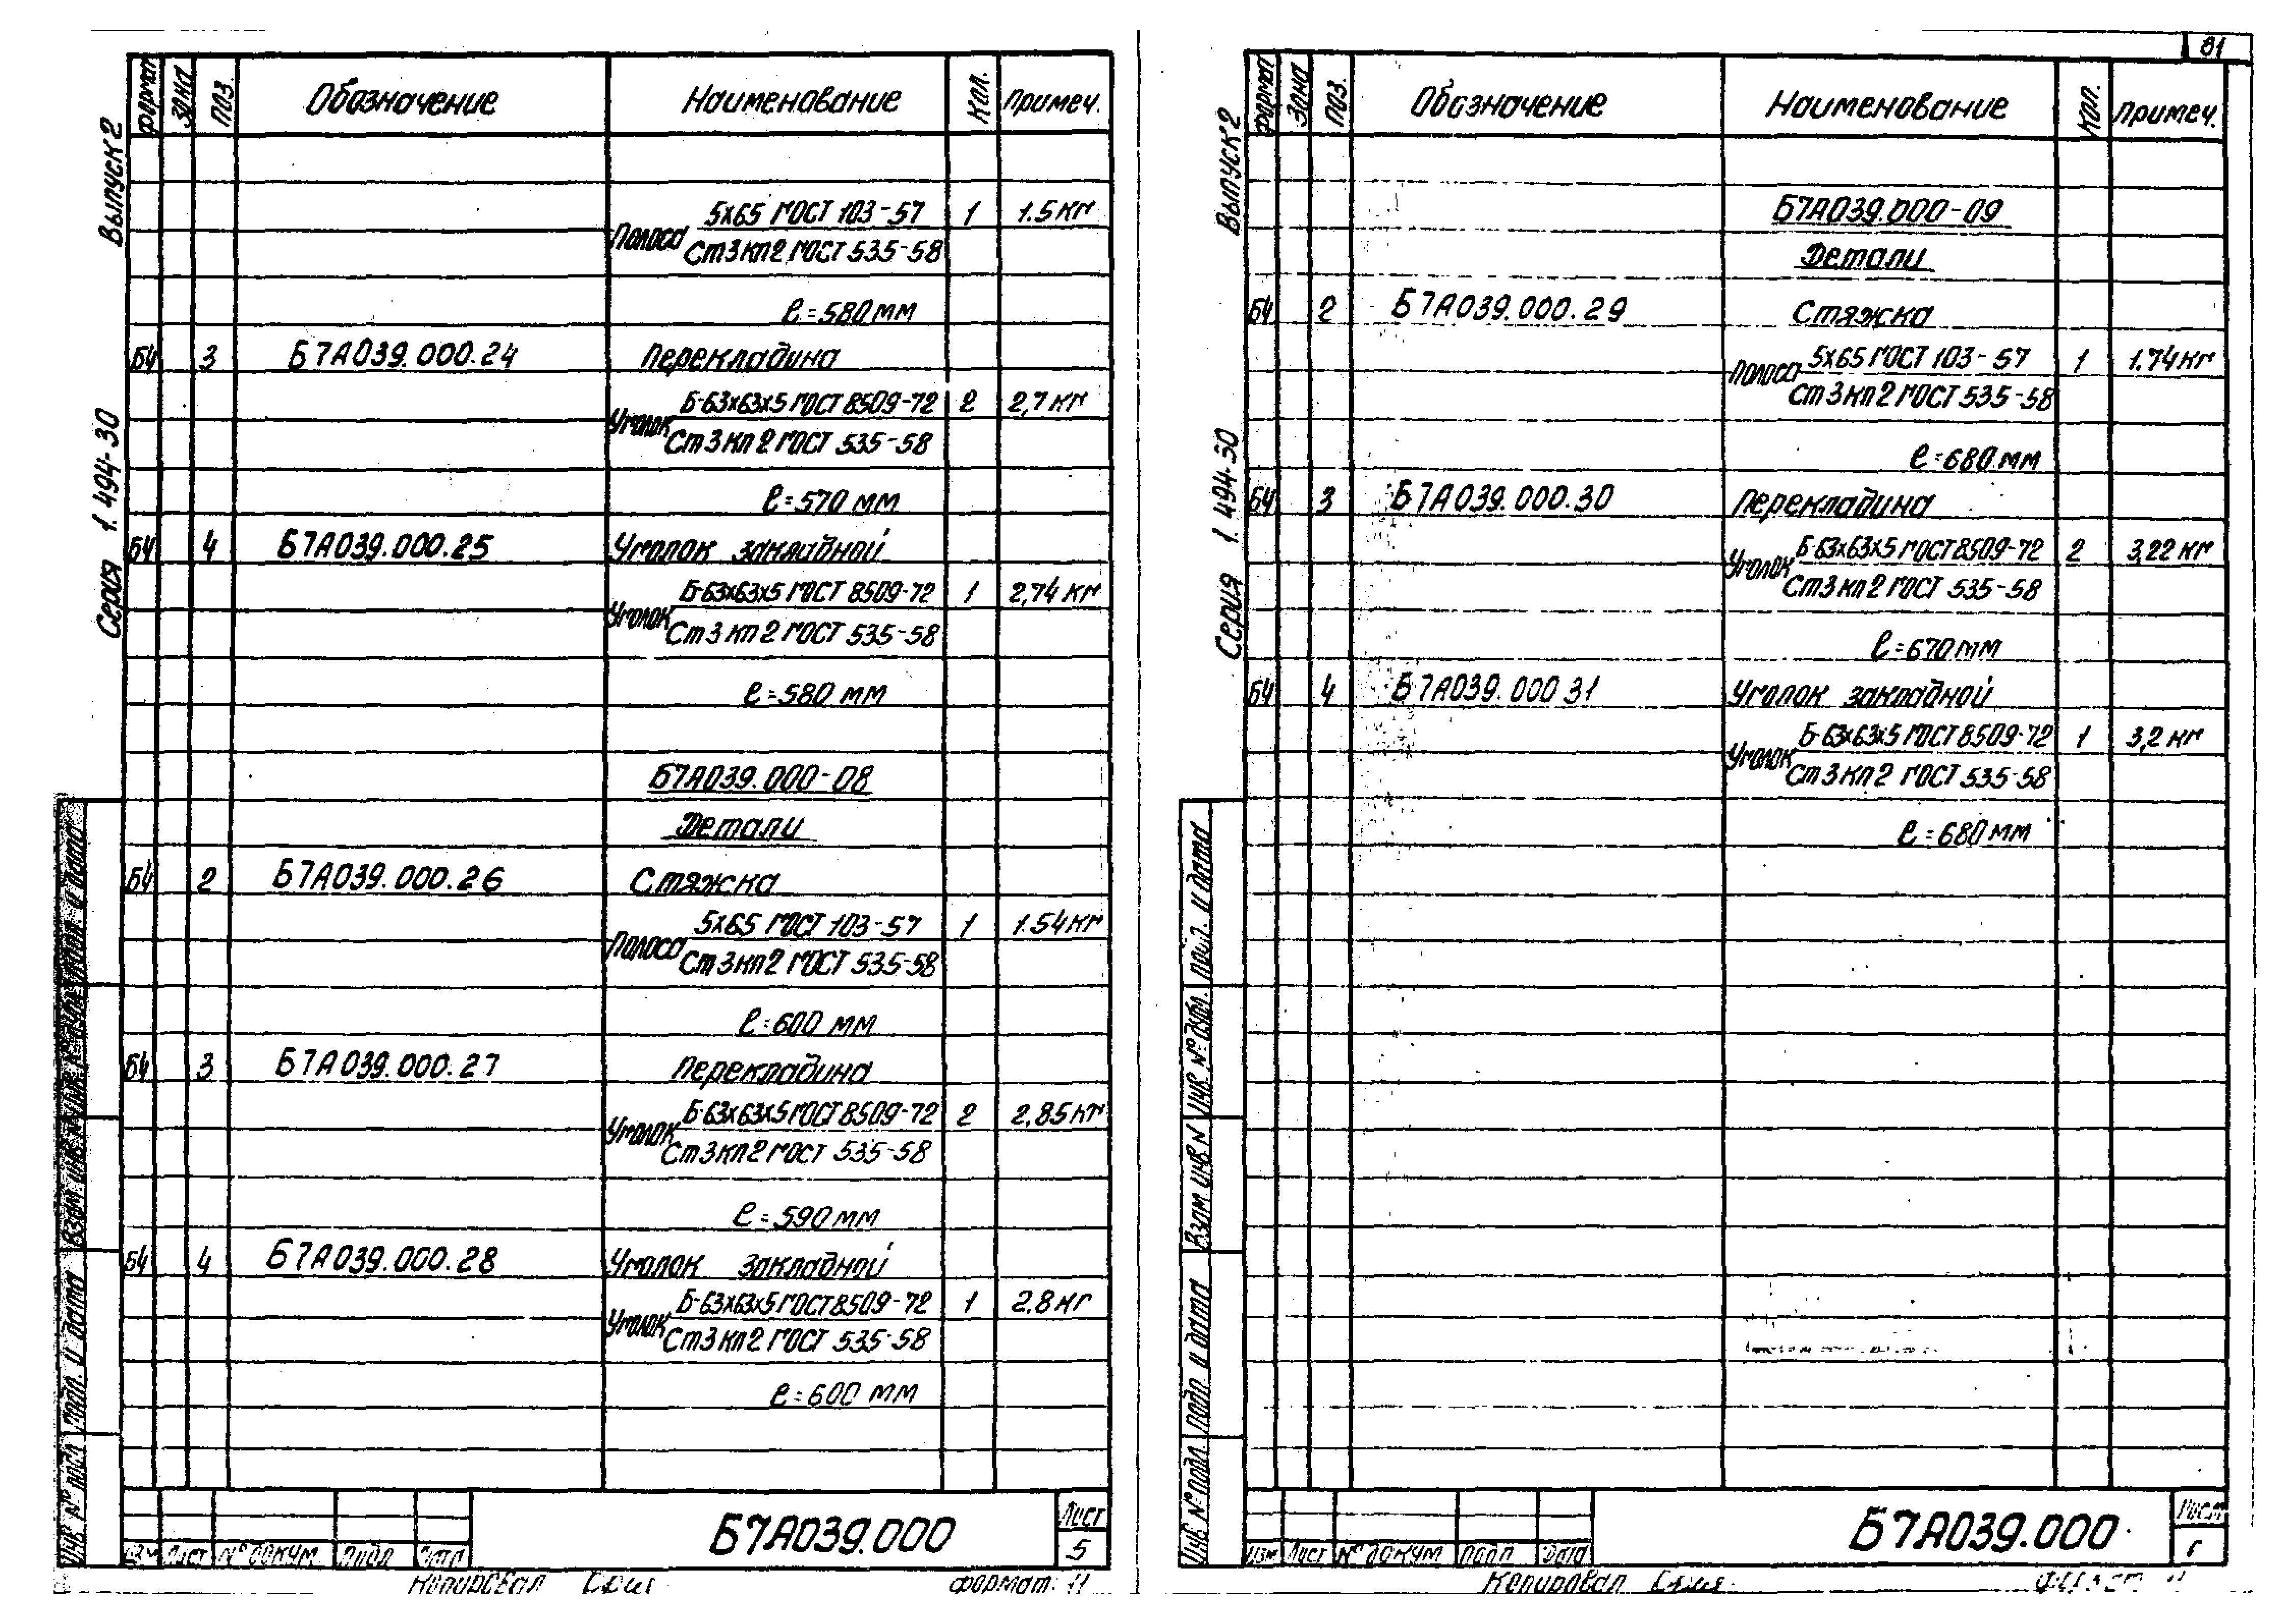 Серия 1.494-30 Выпуск 2
Формат Зона Поз. Обозначение Наименование Кол. Примеч.
Полоса 5х65 ГОСТ 103-57 1 1.5 кг
Ст3кп2 ГОСТ 535-58
ℓ=580мм
Б4 3 Б7А039.000.24 Перекладина
Уголок Б-63х63х5 ГОСТ 8509-72 2 2,7 кг
Ст3кп2 ГОСТ 535-58
ℓ=570 мм
Б4 4 Б7А039.000.25 Уголок закладной
Уголок Б-63х63х5 ГОСТ 8509-72 1 2,74 кг
Ст3кп2 ГОСТ 535-58
ℓ=580 мм
Б7А039.000-08
Детали
Б4 2 Б7А039.000.26 Стяжка
Полоса 5х65 ГОСТ 103-57 1 1.54кг
Ст3кп2 ГОСТ 535-58
ℓ=600 мм
Б4 3 Б7А039.000.27 Перекладина
Уголок Б-63х63х5 ГОСТ 8509-72 2 2,85кг
Ст3кп2 ГОСТ 535-58
ℓ=590мм
Б4 4 Б7А039.000.28 Уголок закладной
Уголок Б-63х63х5 ГОСТ 8509-72 1 2.8кг
Ст3кп2 ГОСТ 535-58
ℓ=600 мм
Инв. № подл. Подп. и дата Взам. инв. № Инв. № дубл. Подп. и дата
Изм Лист № докум. Подп. Дата
Б7А039.000
Лист
5
Копировал
Формат: 11
81
Серия 1.494-30 Выпуск 2
Формат Зона Поз. Обозначение Наименование Кол. Примеч.
Б7А039.000-09
Детали
Б4 2 Б7А039.000.29 Стяжка
Полоса 5х65 ГОСТ 103-57 1 1.74кг
Ст3кп2 ГОСТ 535-58
ℓ=680мм
Б4 3 Б7А039.000.30 Перекладина
Уголок Б-63х63х5 ГОСТ 8509-72 2 3,22 кг
Ст3кп2 ГОСТ 535-58
ℓ=670мм
Б4 4 Б7А039.000 31 Уголок закладной
Уголок Б-63х63х5 ГОСТ 8509-72 1 3,2 кг
Ст3кп2 ГОСТ 535-58
ℓ=680мм
Инв. № подл. Подп. и дата Взам инв N Инв. № дубл. Подп. и дата
Изм Лист № докум. Подп. Дата
Б7А039.000
Лист
Копировал